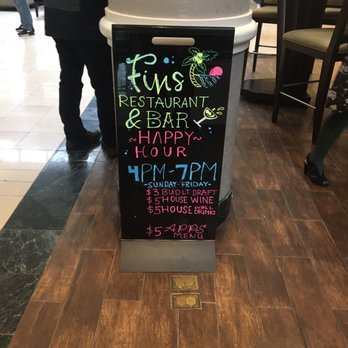 Fins
RESTAURANT
& BAR
~HAPPY~
HOUR
4PM-7PM
-SUNDAY-FRIDAY-
$3 BUDLT DRAFT
$5 HOUSE WINE
$5 HOUSE WELL DRINKS
$5 APPS MENU